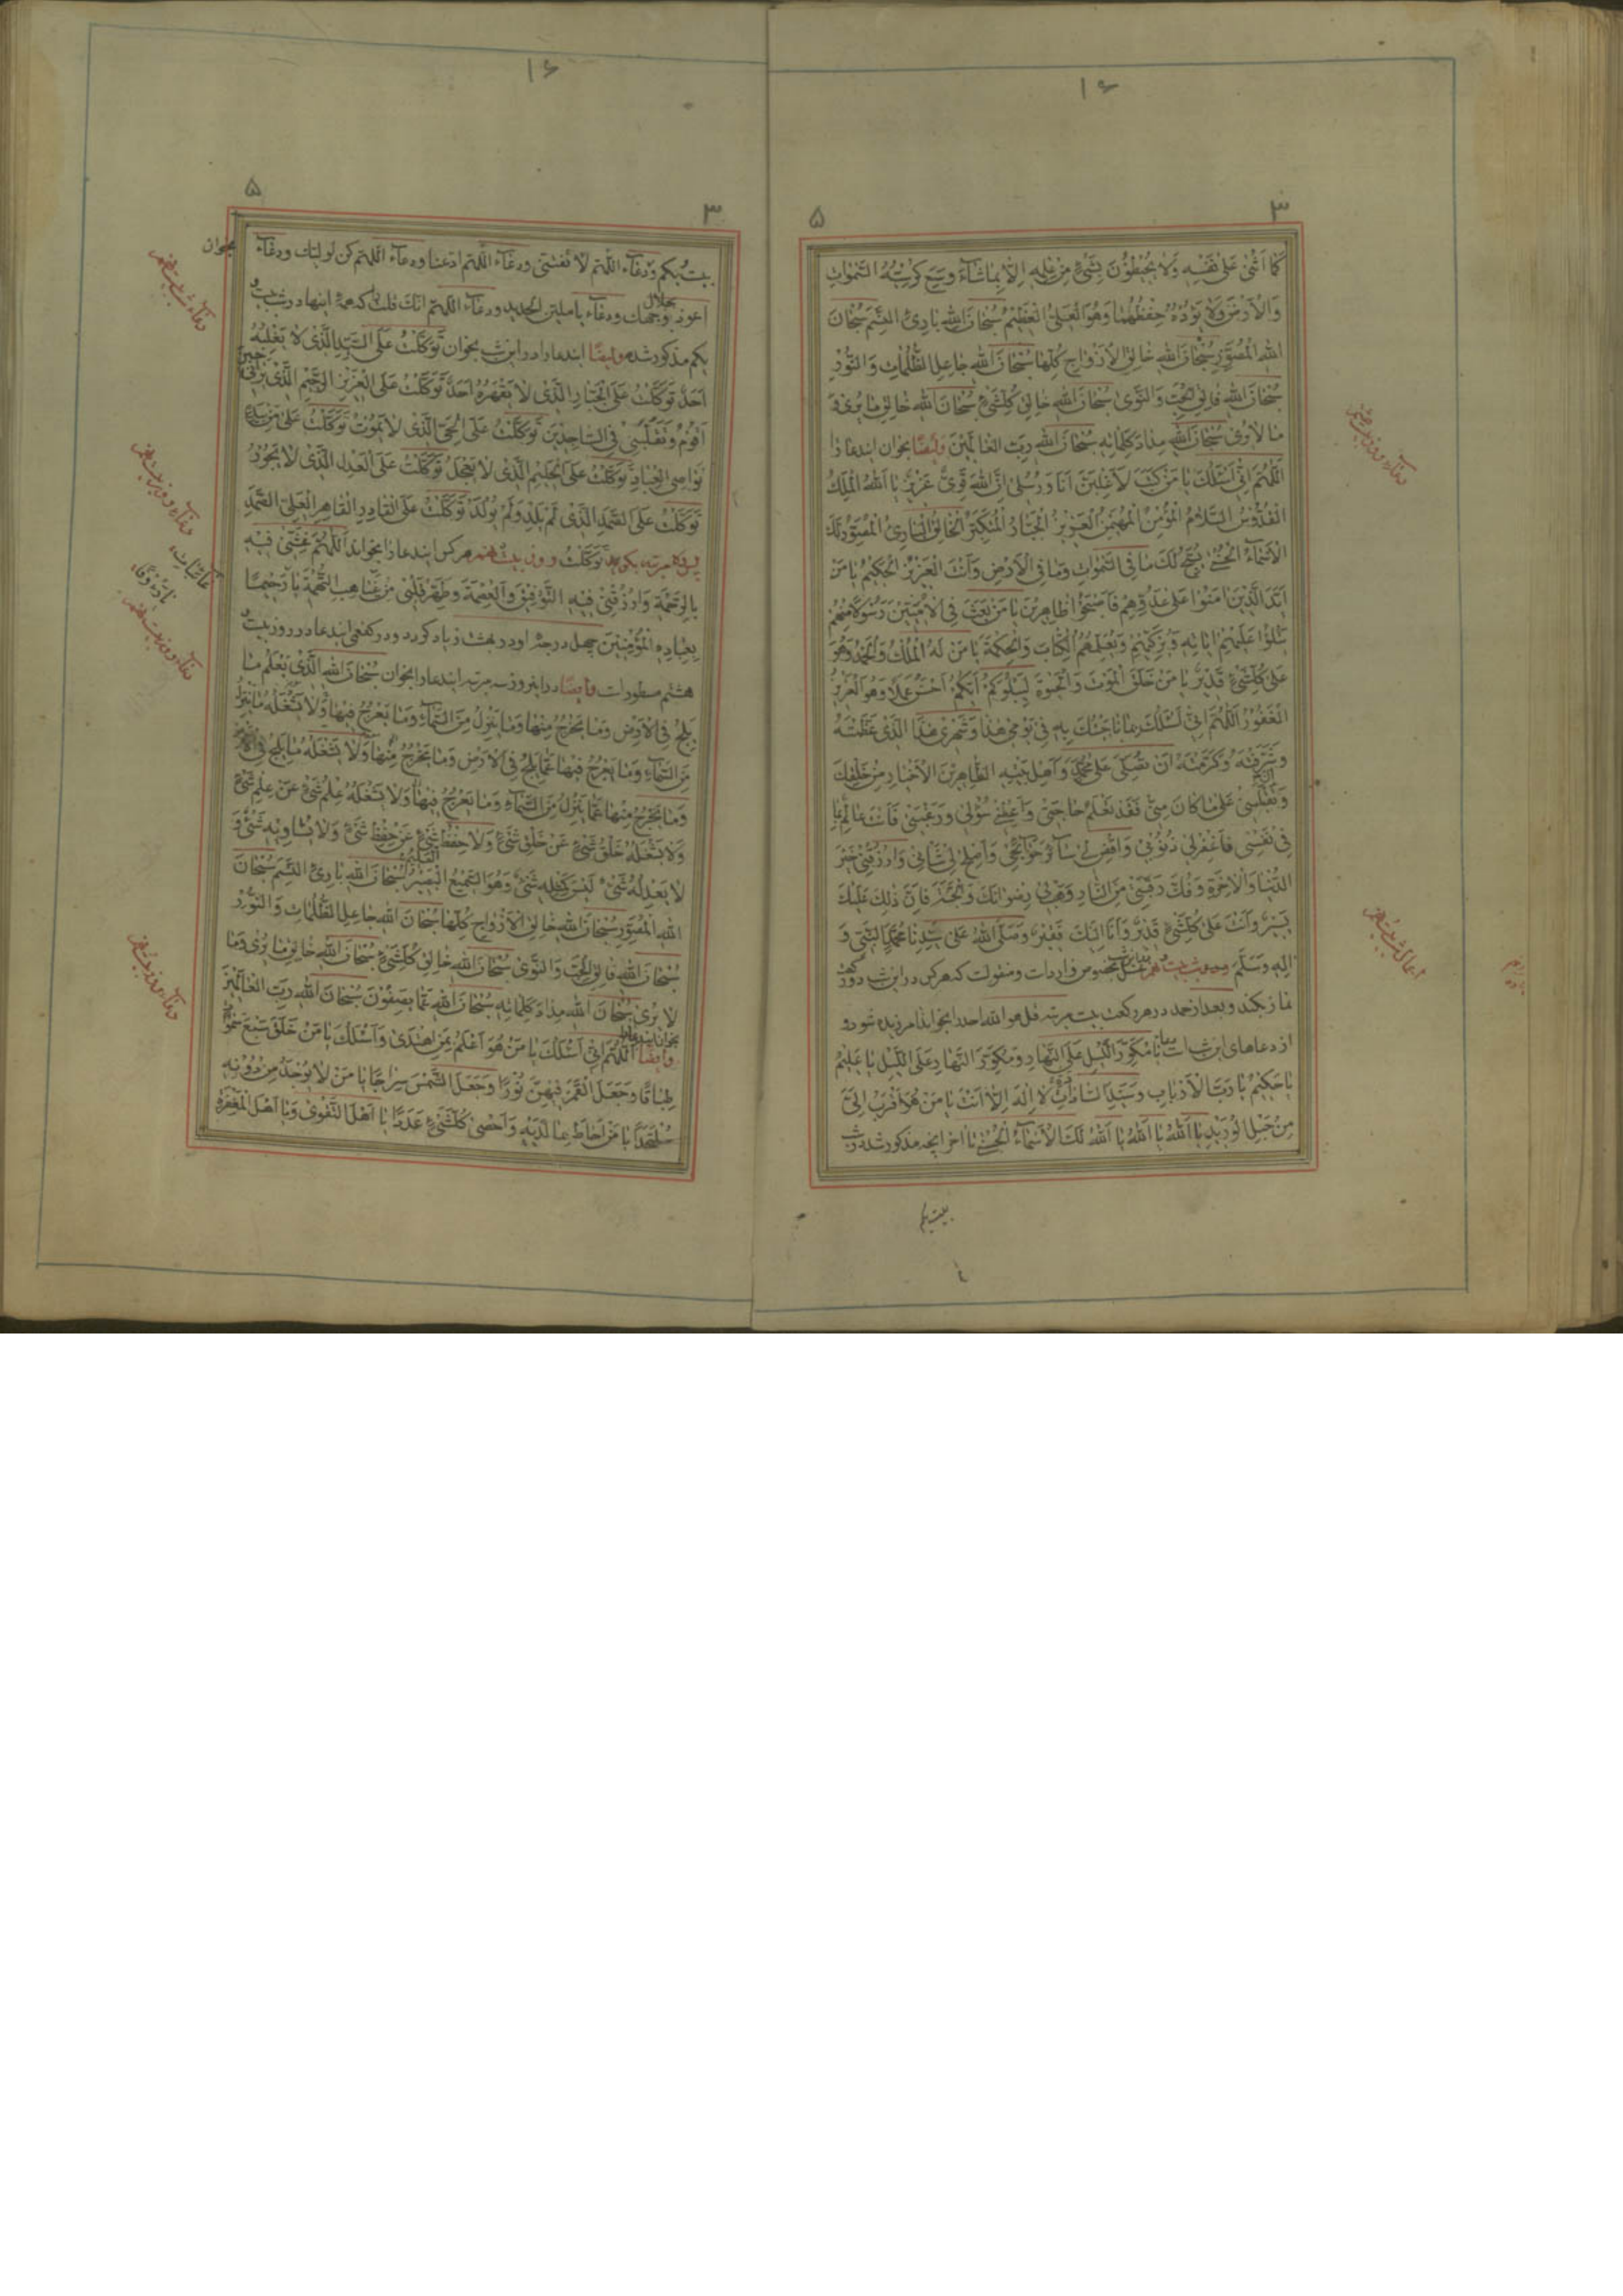 ۱۶
۳
۵
كَمَا أَثْنَىٰ عَلَىٰ نَفْسِهِ وَلَا يُحِيطُونَ بِشَيْءٍ مِنْ عِلْمِهِ إِلَّا بِمَا شَاءَ وَسِعَ كُرْسِيُّهُ السَّمٰوَاتِ
وَالْأَرْضَ وَلَا يَؤُدُهُ حِفْظُهُمَا وَهُوَ الْعَلِيُّ الْعَظِيمُ سُبْحَانَ اللهِ بَارِئِ النَّسَمِ سُبْحَانَ
اللهِ الْمُصَوِّرِ سُبْحَانَ اللهِ خَالِقِ الْأَزْوَاجِ كُلِّهَا سُبْحَانَ اللهِ جَاعِلِ الظُّلُمَاتِ وَالنُّورِ
سُبْحَانَ اللهِ فَالِقِ الْحَبِّ وَالنَّوَىٰ سُبْحَانَ اللهِ خَالِقِ كُلِّ شَيْءٍ سُبْحَانَ اللهِ خَالِقِ مَا يُرَىٰ وَ
مَا لَا يُرَىٰ سُبْحَانَ اللهِ مِدَادَ كَلِمَاتِهِ سُبْحَانَ اللهِ رَبِّ الْعَالَمِينَ وایضًا بخوان ایندعا را
اَللّٰهُمَّ إِنِّي أَسْئَلُكَ يَا مَنْ كَتَبَ لَأَغْلِبَنَّ أَنَا وَرُسُلِي إِنَّ اللهَ قَوِيٌّ عَزِيزٌ يَا اَللهُ الْمَلِكُ
الْقُدُّوسُ السَّلَامُ الْمُؤْمِنُ الْمُهَيْمِنُ الْعَزِيزُ الْجَبَّارُ الْمُتَكَبِّرُ الْخَالِقُ الْبَارِئُ الْمُصَوِّرُ لَكَ
الْأَسْمَاءُ الْحُسْنَىٰ يُسَبِّحُ لَكَ مَا فِي السَّمٰوَاتِ وَمَا فِي الْأَرْضِ وَأَنْتَ الْعَزِيزُ الْحَكِيمُ يَا مَنْ
أَيَّدَ الَّذِينَ اٰمَنُوا عَلَىٰ عَدُوِّهِمْ فَأَصْبَحُوا ظَاهِرِينَ يَا مَنْ بَعَثَ فِي الْأُمِّيِّينَ رَسُولًا مِنْهُمْ
يَتْلُوا عَلَيْهِمْ اٰيَاتِهِ وَيُزَكِّيهِمْ وَيُعَلِّمُهُمُ الْكِتَابَ وَالْحِكْمَةَ يَا مَنْ لَهُ الْمُلْكُ وَالْحَمْدُ وَهُوَ
عَلَىٰ كُلِّ شَيْءٍ قَدِيرٌ يَا مَنْ خَلَقَ الْمَوْتَ وَالْحَيٰوةَ لِيَبْلُوَكُمْ أَيُّكُمْ أَحْسَنُ عَمَلًا وَهُوَ الْعَزِيزُ
الْغَفُورُ اَللّٰهُمَّ إِنِّي أَسْئَلُكَ بِمَا نَاجَيْتُكَ بِهِ فِي يَوْمِي هٰذَا وَشَهْرِي هٰذَا الَّذِي عَظَّمْتَهُ
وَشَرَّفْتَهُ وَكَرَّمْتَهُ أَنْ تُصَلِّيَ عَلَىٰ مُحَمَّدٍ وَأَهْلِ بَيْتِهِ الطَّاهِرِينَ الْأَخْيَارِ مِنْ خَلْقِكَ
فِي نَفْسِي فَاغْفِرْ لِي ذُنُوبِي وَاقْضِ لِي سَائِرَ حَوَائِجِي وَأَصْلِحْ لِي شَأْنِي وَارْزُقْنِي خَيْرَ
الدُّنْيَا وَالْاٰخِرَةِ وَفُكَّ رَقَبَتِي مِنَ النَّارِ وَهَبْ لِي رِضْوَانَكَ وَالْجَنَّةَ فَإِنَّ ذٰلِكَ عَلَيْكَ
يَسِيرٌ وَأَنْتَ عَلَىٰ كُلِّ شَيْءٍ قَدِيرٌ وَأَنَا إِلَيْكَ فَقِيرٌ وَصَلَّى اللهُ عَلَىٰ سَيِّدِنَا مُحَمَّدٍ النَّبِيِّ وَ
اٰلِهِ وَسَلَّمَ
نماز بکند و بعد از حمد در هر رکعت بیست مرتبه قل هو الله احد را بخواند امرزیده شود و
از دعاهای این شب است يَا مُكَوِّرَ اللَّيْلِ عَلَى النَّهَارِ وَمُكَوِّرَ النَّهَارِ عَلَى اللَّيْلِ يَا عَلِيمُ
يَا حَكِيمُ يَا رَبَّ الْأَرْبَابِ وَسَيِّدَ السَّادَاتِ لَا إِلٰهَ إِلَّا أَنْتَ يَا مَنْ هُوَ أَقْرَبُ إِلَيَّ
مِنْ حَبْلِ الْوَرِيدِ يَا اَللهُ يَا اَللهُ يَا اَللهُ لَكَ الْأَسْمَاءُ الْحُسْنَىٰ تا اخر انچه مذکور شد در شب
بیست یکم
۱۶
۳
۵
بیست یکم ودعاء اللّهمّ لا تفتنّی ودعاء اللّهمّ ادعنا ودعاء اللّهمّ کن لولیّک ودعاء
اعوذ بجلال وجهک ودعاء یا ملین الحدید ودعاء اللّهمّ انّک قلت که همهٔ اینها در شب بیست و
یکم مذکور شده وایضًا ایندعا را در این شب بخوان تَوَكَّلْتُ عَلَى السَّيِّدِ الَّذِي لَا يَغْلِبُهُ
أَحَدٌ تَوَكَّلْتُ عَلَى الْجَبَّارِ الَّذِي لَا يَقْهَرُهُ أَحَدٌ تَوَكَّلْتُ عَلَى الْعَزِيزِ الرَّحِيمِ الَّذِي يَرَانِي حِينَ
أَقُومُ وَتَقَلُّبِي فِي السَّاجِدِينَ تَوَكَّلْتُ عَلَى الْحَيِّ الَّذِي لَا يَمُوتُ تَوَكَّلْتُ عَلَىٰ مَنْ بِيَدِهِ
نَوَاصِي الْعِبَادِ تَوَكَّلْتُ عَلَى الْحَلِيمِ الَّذِي لَا يَعْجَلُ تَوَكَّلْتُ عَلَى الْعَدْلِ الَّذِي لَا يَجُورُ
تَوَكَّلْتُ عَلَى الصَّمَدِ الَّذِي لَمْ يَلِدْ وَلَمْ يُولَدْ تَوَكَّلْتُ عَلَى الْقَادِرِ الْقَاهِرِ الْعَلِيِّ الصَّمَدِ
پس ده مرتبه بکو تَوَكَّلْتُ روز بیست هفتم هر کس ایندعا را بخواند اَللّٰهُمَّ غَشِّنِي فِيهِ
بِالرَّحْمَةِ وَارْزُقْنِي فِيهِ التَّوْفِيقَ وَالْعِصْمَةَ وَطَهِّرْ قَلْبِي مِنْ غَيَاهِبِ التُّهَمَةِ يَا رَحِيمًا
بِعِبَادِهِ الْمُؤْمِنِينَ چهل درجهٔ او در بهشت زیاد کردد ودر کفعمی ایندعا در روز بیست و
هشتم مسطورات وایضًا در این روز سه مرتبه ایندعا را بخوان سُبْحَانَ اللهِ الَّذِي يَعْلَمُ مَا
يَلِجُ فِي الْأَرْضِ وَمَا يَخْرُجُ مِنْهَا وَمَا يَنْزِلُ مِنَ السَّمَاءِ وَمَا يَعْرُجُ فِيهَا وَلَا يَشْغَلُهُ مَا يَنْزِلُ
مِنَ السَّمَاءِ وَمَا يَعْرُجُ فِيهَا عَمَّا يَلِجُ فِي الْأَرْضِ وَمَا يَخْرُجُ مِنْهَا وَلَا يَشْغَلُهُ مَا يَلِجُ فِي الْأَرْضِ
وَمَا يَخْرُجُ مِنْهَا عَمَّا يَنْزِلُ مِنَ السَّمَاءِ وَمَا يَعْرُجُ فِيهَا وَلَا يَشْغَلُهُ عِلْمُ شَيْءٍ عَنْ عِلْمِ شَيْءٍ
وَلَا يَشْغَلُهُ خَلْقُ شَيْءٍ عَنْ خَلْقِ شَيْءٍ وَلَا حِفْظُ شَيْءٍ عَنْ حِفْظِ شَيْءٍ وَلَا يُسَاوِيهِ شَيْءٌ وَ
لَا يَعْدِلُهُ شَيْءٌ لَيْسَ كَمِثْلِهِ شَيْءٌ وَهُوَ السَّمِيعُ الْبَصِيرُ سُبْحَانَ اللهِ بَارِئِ النَّسَمِ سُبْحَانَ
اللهِ الْمُصَوِّرِ سُبْحَانَ اللهِ خَالِقِ الْأَزْوَاجِ كُلِّهَا سُبْحَانَ اللهِ جَاعِلِ الظُّلُمَاتِ وَالنُّورِ
سُبْحَانَ اللهِ فَالِقِ الْحَبِّ وَالنَّوَىٰ سُبْحَانَ اللهِ خَالِقِ كُلِّ شَيْءٍ سُبْحَانَ اللهِ خَالِقِ مَا يُرَىٰ وَمَا
لَا يُرَىٰ سُبْحَانَ اللهِ مِدَادَ كَلِمَاتِهِ سُبْحَانَ اللهِ عَمَّا يَصِفُونَ سُبْحَانَ اللهِ رَبِّ الْعَالَمِينَ
وایضًا بخوان ایندعا را اَللّٰهُمَّ إِنِّي أَسْئَلُكَ يَا مَنْ هُوَ أَعْلَمُ بِمَنِ اهْتَدَىٰ وَأَسْئَلُكَ يَا مَنْ خَلَقَ سَبْعَ سَمٰوَاتٍ
طِبَاقًا وَجَعَلَ الْقَمَرَ فِيهِنَّ نُورًا وَجَعَلَ الشَّمْسَ سِرَاجًا يَا مَنْ لَا يُوجَدُ مِنْ دُونِهِ
مُلْتَحَدًا يَا مَنْ أَحَاطَ بِمَا لَدَيْهِ وَأَحْصَىٰ كُلَّ شَيْءٍ عَدَدًا يَا أَهْلَ التَّقْوَىٰ وَيَا أَهْلَ الْمَغْفِرَةِ